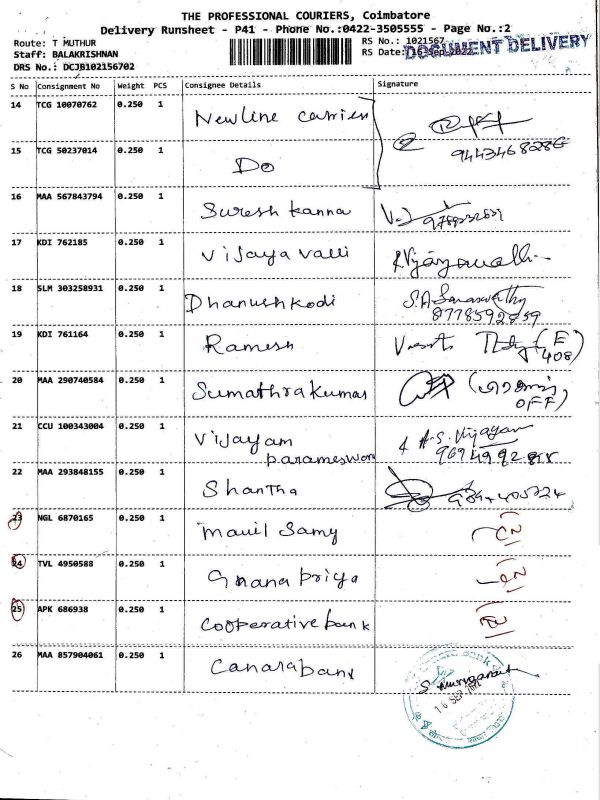 THE PROFESSIONAL COURIERS, Coimbatore
Delivery Runsheet - P41 - Phone No.:0422-3505555 - Page No.:2
Route: T MUTHUR
RS No.: 1021567
Staff: BALAKRISHNAN
RS Date: 16-Sep-2022
DOCUMENT DELIVERY
DRS No.: DCJB102156702
S No Consignment No Weight PCS Consignee Details Signature
14 TCG 10070762 0.250 1 Newline carrier
15 TCG 50237014 0.250 1 Do
16 MAA 567843794 0.250 1 Suresh kanna
17 KDI 762185 0.250 1 Vijaya valli
18 SLM 303258931 0.250 1 Dhanushkodi S.A Saraswathy
8778592859
19 KDI 761164 0.250 1 Ramesh (E 408)
20 MAA 290740584 0.250 1 Sumathrakumar
OFF)
21 CCU 100343004 0.250 1 Vijayam A.S. Vijayan
parameswon
22 MAA 293848155 0.250 1 Shantha
23 NGL 6870165 0.250 1 mauil Samy CN
24 TVL 4950588 0.250 1 Gnana priya CN
25 APK 686938 0.250 1 cooperative bank
26 MAA 857904061 0.250 1 Canarabank
16 SEP 2022